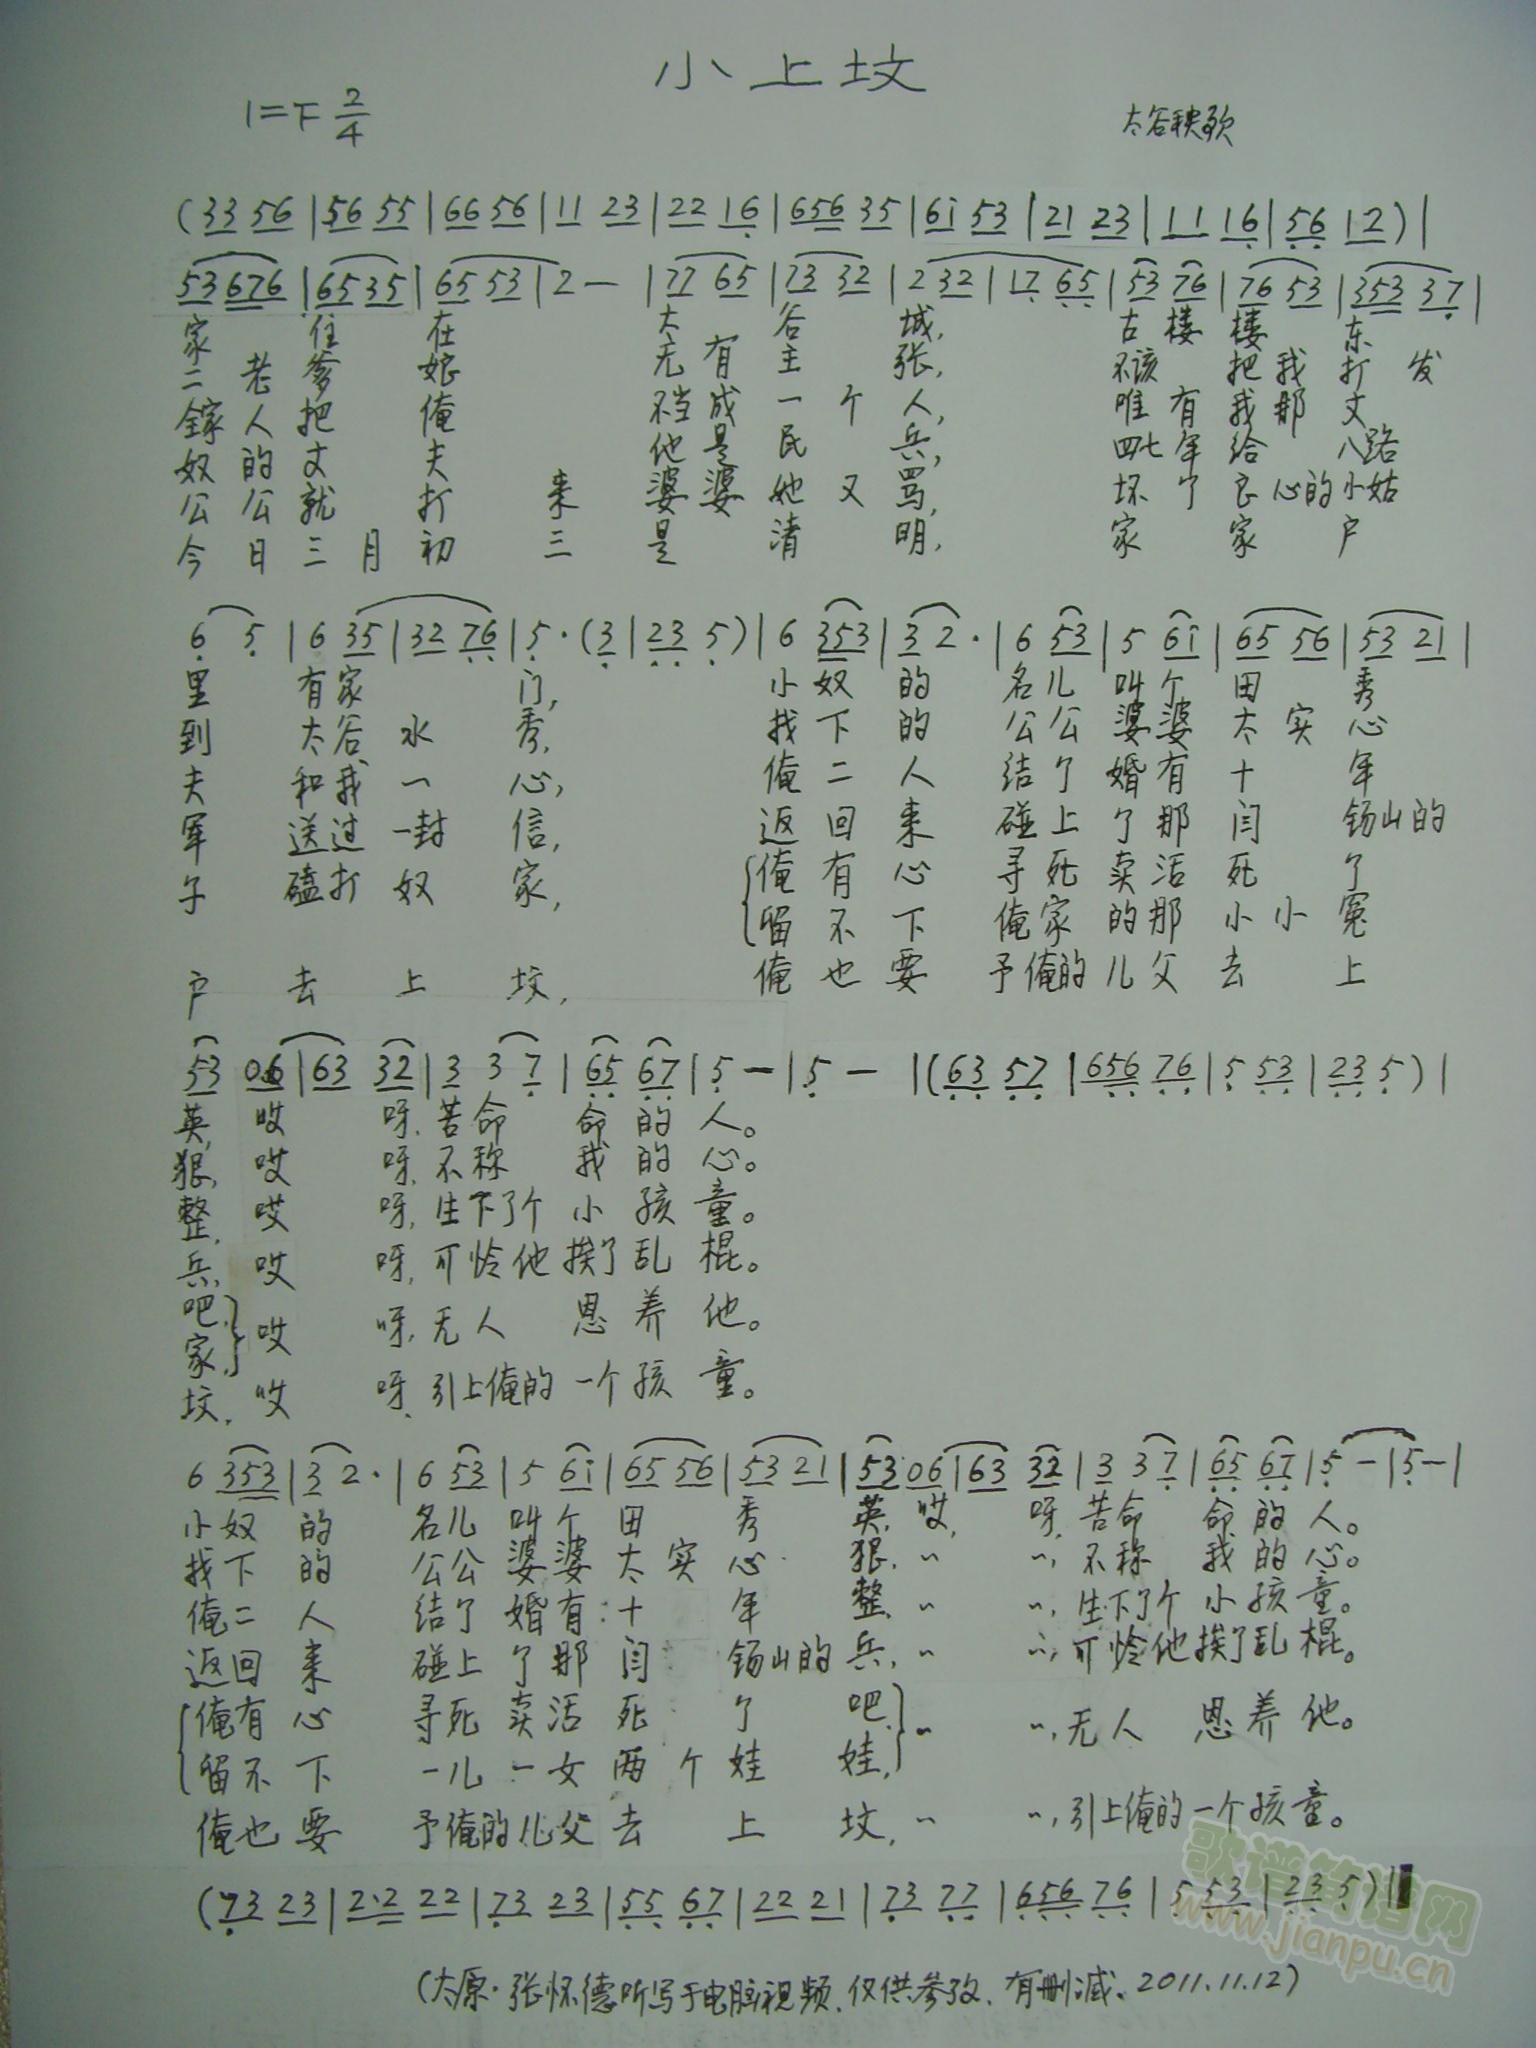 小上坟
1=F 2/4
太谷秧歌
(33 56|56 55|66 56|11 23|22 16|656 35|6i 53|21 23|11 16|56 12)|
53676|6535|65 53|2—|77 65|73 32|2 32|17 65|53 76|76 53|353 37|
家 住 在 太 谷 城, 古楼楼东
二老爹娘无有主张, 不该把我打发
全家人把俺不当成一个人, 唯有我那丈
奴的丈夫他是民兵, 四七年给八路
公公就打来婆婆她又骂, 坏了良心的小姑
今日三月初三是清明, 家家户
6 5|6 35|32 76|5·(3|23 5)|6 353|3 2·|6 53|5 6i|65 56|53 21|
里有家门, 小奴的名儿叫个田秀
到太谷水秀, 找下的公公婆婆太实心
夫和我一心, 俺二人结了婚有十年
军送过一封信, 返回来碰上了那闫锡山的
子磕打奴家, 俺有心寻死卖活死了
留不下俺家的那小小冤
户去上坟, 俺也要予俺的儿父去上
53 06|63 32|3 3 7|65 67|5—|5—|(63 57|656 76|5 53|23 5)|
英,哎呀,苦命命的人。
狠,哎呀,不称我的心。
整,哎呀,生下了个小孩童。
兵,哎呀,可怜他挨了乱棍。
吧,
哎呀,无人恩养他。
家,
坟,哎呀,引上俺的一个孩童。
6 353|3 2·|6 53|5 6i|65 56|53 21|53 06|63 32|3 3 7|65 67|5—|5—|
小奴的名儿叫个田秀英,哎,呀,苦命命的人。
找下的公公婆婆太实心狠,〃〃,不称我的心。
俺二人结了婚有十年整,〃〃,生下了个小孩童。
返回来碰上了那闫锡山的兵,〃〃,可怜他挨了乱棍。
俺有心寻死卖活死了吧,
〃〃,无人恩养他。
留不下一儿一女两个娃娃,
俺也要予俺的儿父去上坟,〃〃,引上俺的一个孩童。
(73 23|2·2 22|73 23|55 67|22 21|73 77|656 76|5 53|23 5)‖
(太原·张怀德听写于电脑视频,仅供参考,有删减。2011.11.12)
歌谱简谱网
www.jianpu.cn